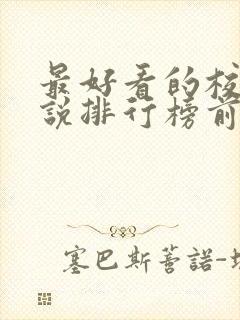 最好看的校
説排行榜前
塞巴斯蒂諾-